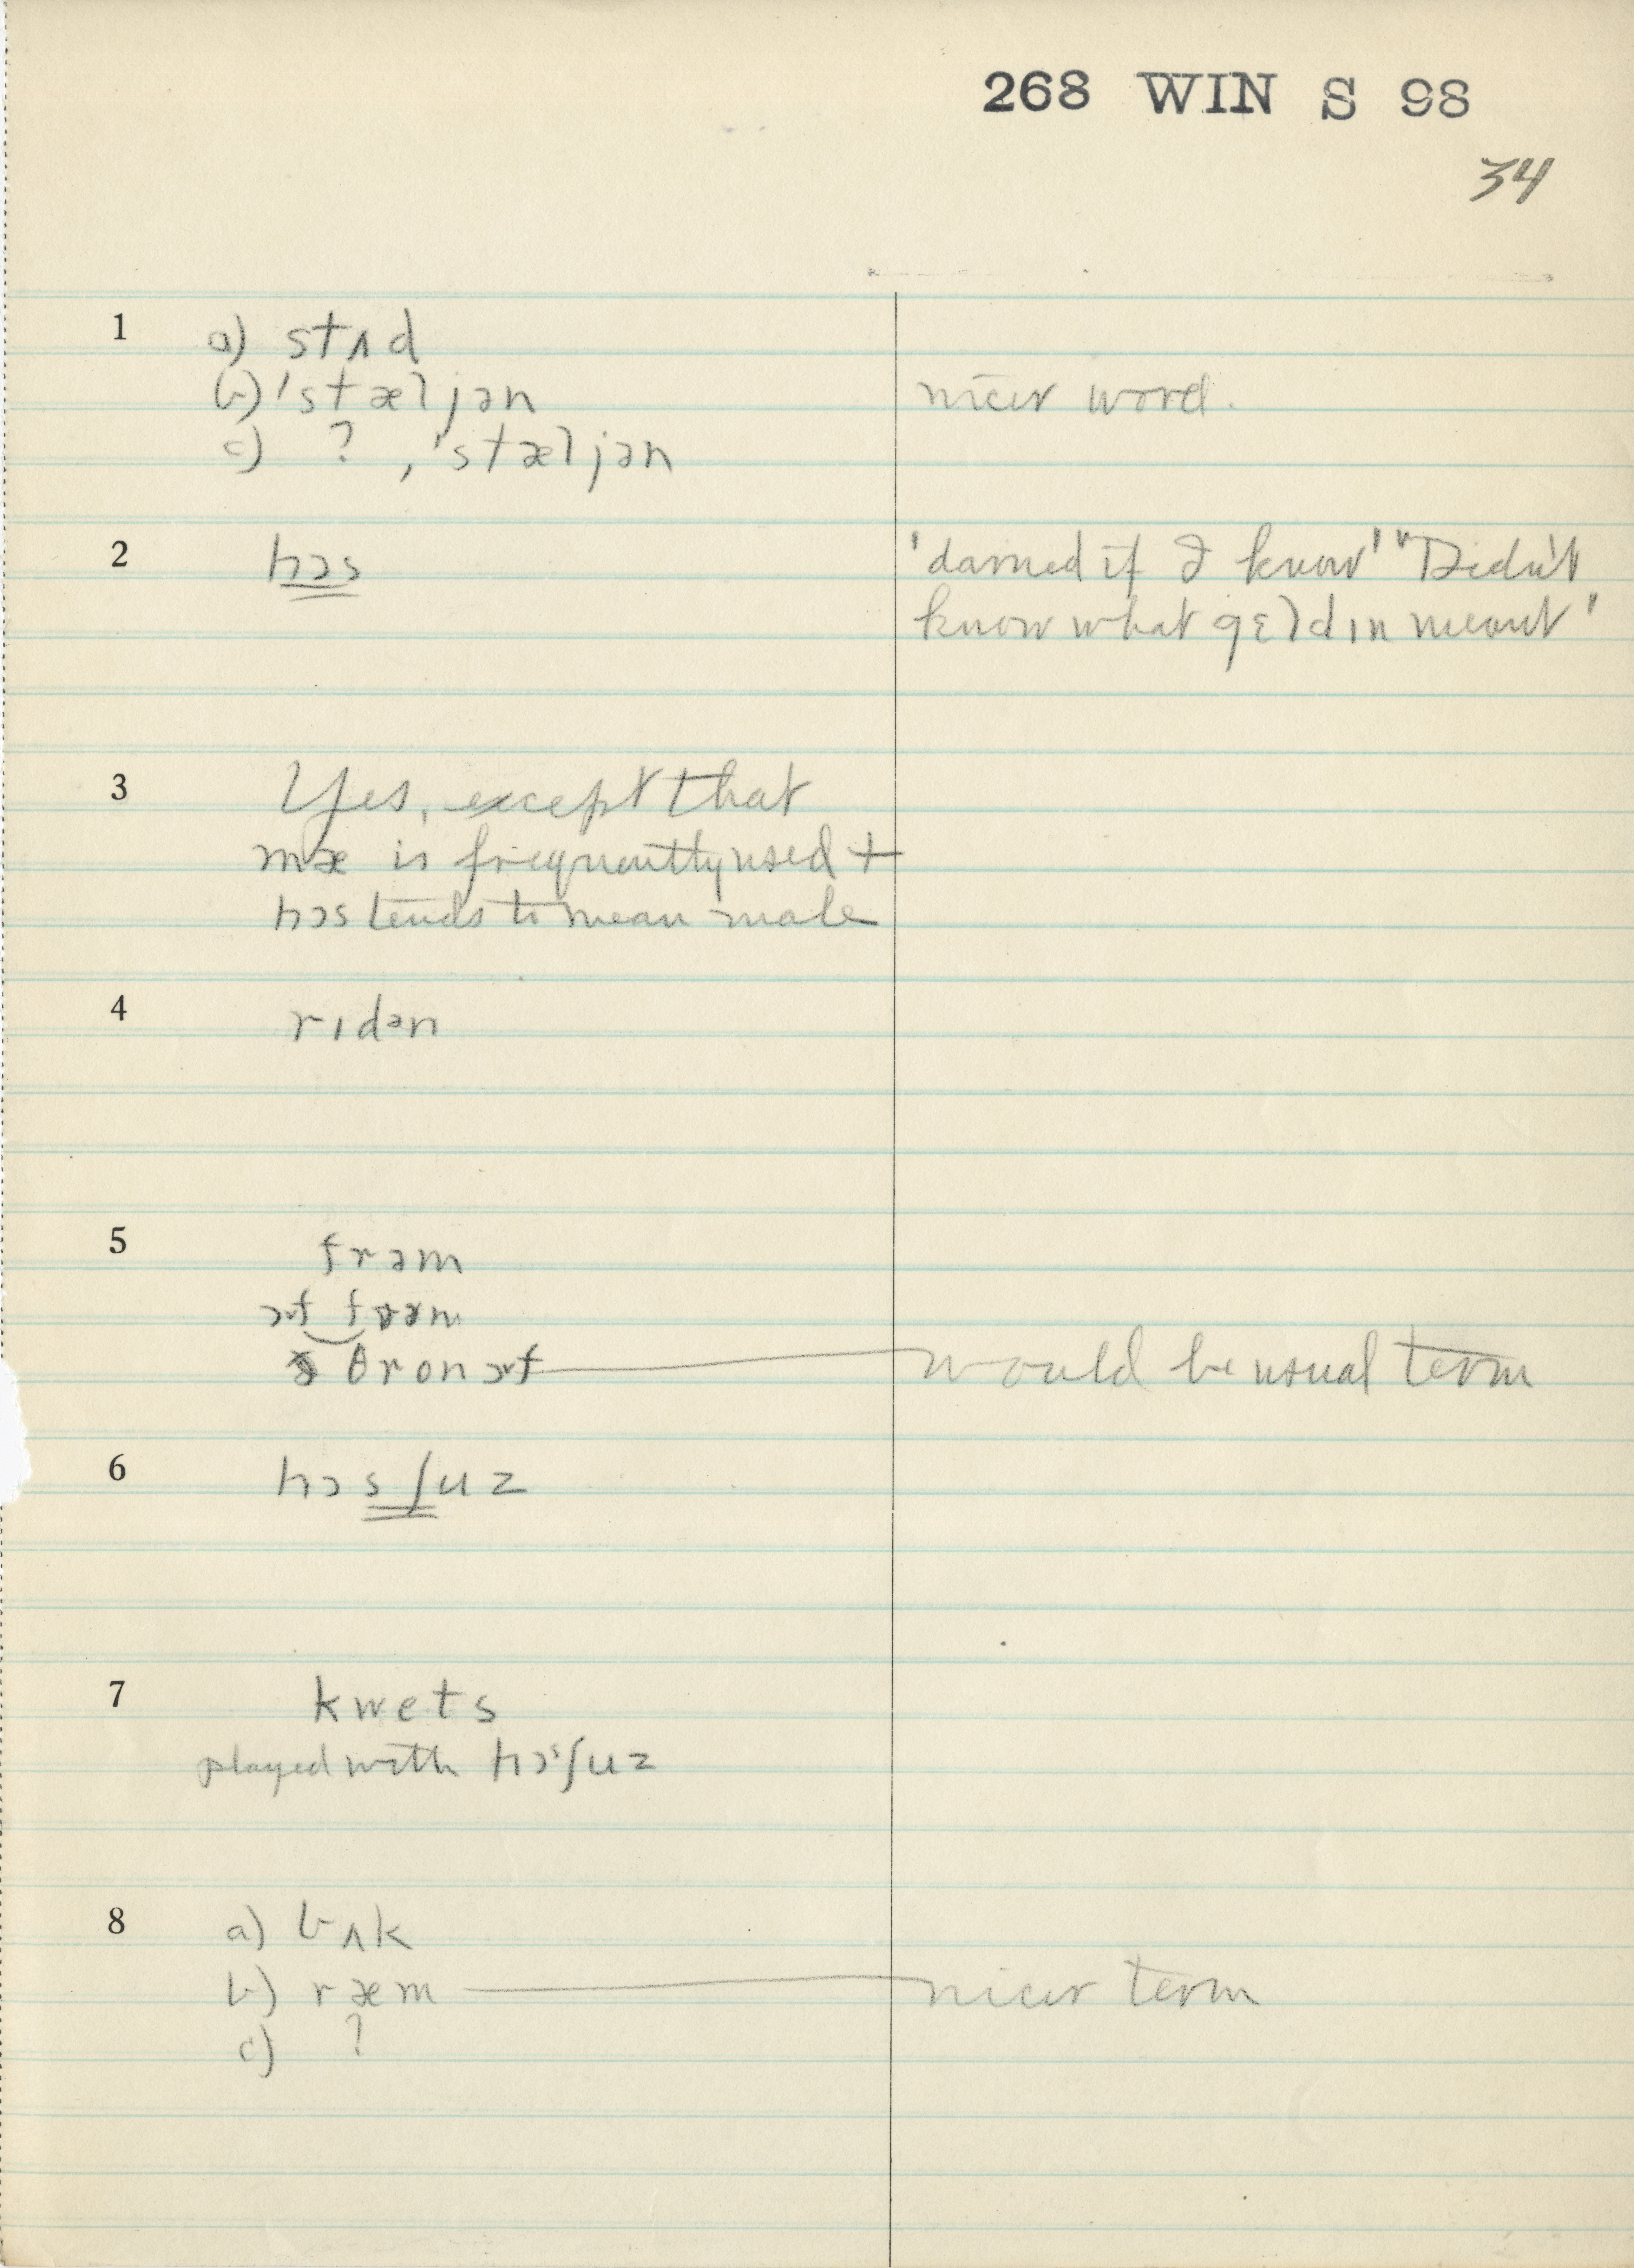 268 WIN S 98
34
1 a) stʌd
b) 'stæljən nicer word.
c) ? , 'stæljən
2 hɔs 'damned if I know' "Didn't
know what gɛldɪn meant'
3 Yes, except that
mæ is frequently used +
hɔs tends to mean male
4 rɪdən
5 frəm
ɔf frəm
θron ɔf would be usual term
6 hɔsʃuz
7 kwets
played with hɔˢʃuz
8 a) bʌk
b) ræm nicer term
c) ?